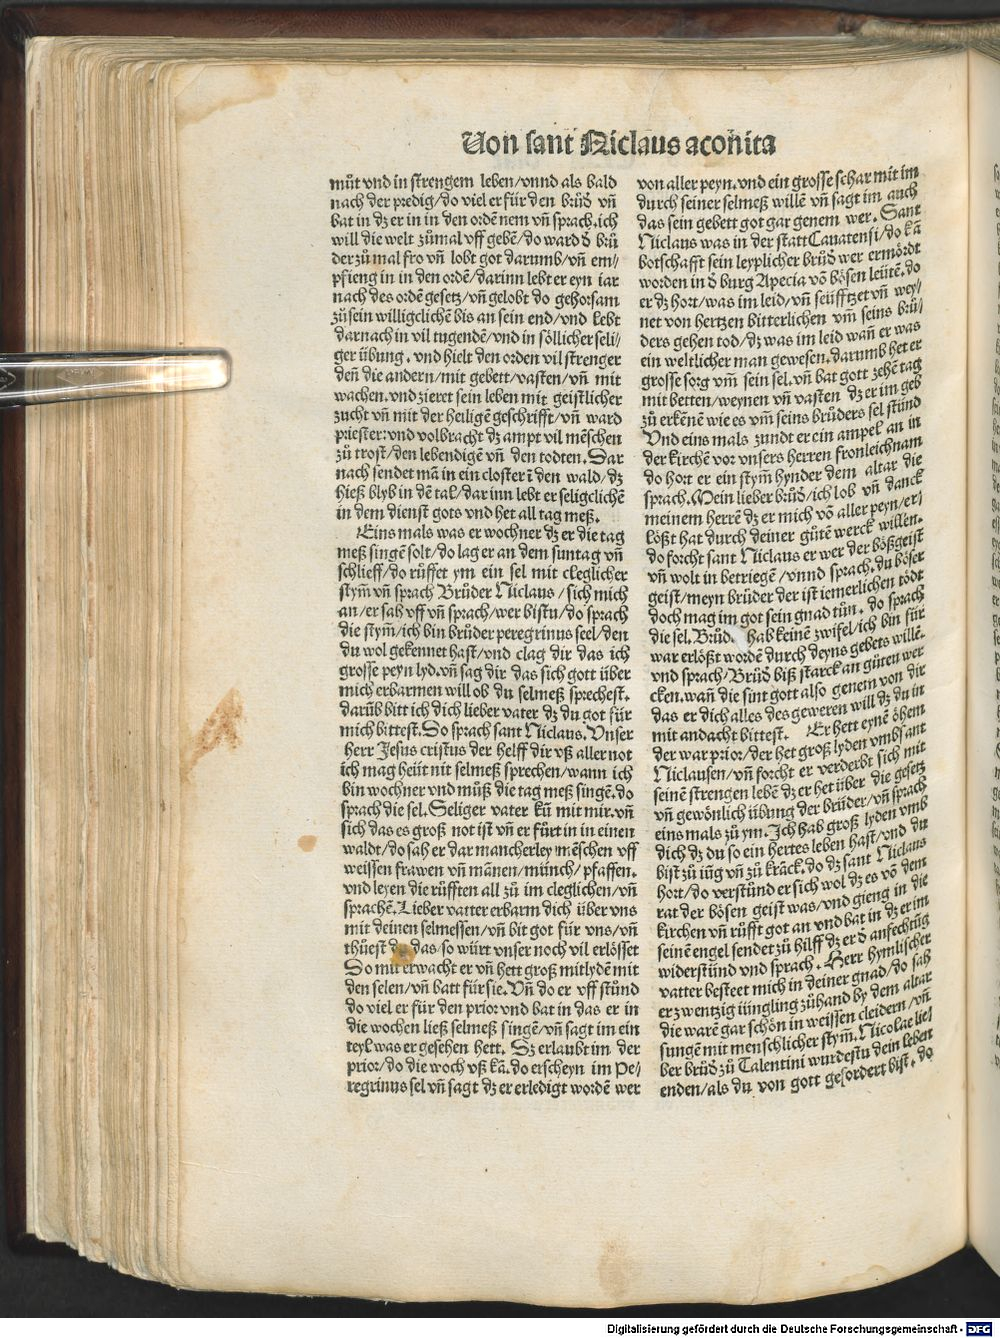 Von sant Niclaus aconita
můt vnd in strengem leben/vnnd als bald
nach der predig/do viel er für den brůd̕ vñ
bat in dz er in in den ordē nem vñ sprach.ich
will die welt zůmal vff gebē/do ward d̕ brů
der zů mal fro vñ lobt got darumb/vñ em/
pfieng in in den ordē/darinn lebt er eyn iar
nach des ordē gesetz/vñ gelobt do gehorsam
zů sein williglichē bis an sein end/vnd lebt
darnach in vil tugendē/vnd in söllicher seli/
ger übung.vnd hielt den orden vil strenger
deñ die andern/mit gebett/vasten/vñ mit
wachen.vnd zieret sein leben mit geistlicher
zucht vñ mit der heiligē geschrifft/vñ ward
priester:vnd volbracht dz ampt vil mēschen
zů trost/den lebendigē vñ den todten.Dar
nach sendet mā in ein closter ī den wald/dz
hieß blyb in dē tal/dar inn lebt er seligclichē
in dem dienst gots vnd het all tag meß.
Eins mals was er wochner dz er die tag
meß singē solt/do lag er an dem suntag vñ
schlieff/do růffet ym ein sel mit cleglicher
stym̄ vñ sprach Brůder Niclaus/sich mich
an/er sah vff vñ sprach/wer bistu/do sprach
die stym̄/ich bin brůder peregrinus seel/den
du wol gekennet hast/vnd clag dir das ich
grosse peyn lyd.vñ sag dir das sich gott über
mich erbarmen will ob du selmeß sprechest.
darūb bitt ich dich lieber vater dz du got für
mich bittest.Do sprach sant Niclaus.Vnser
herr Jesus cristus der helff dir vß aller not
ich mag heüt nit selmeß sprechen/wann ich
bin wochner vnd můß die tag meß singē.do
sprach die sel.Seliger vater kū mit mir.vñ
sich das es groß not ist vñ er fůrt in in einen
waldt/do sah er dar mancherley mēschen vff
weissen frawen vñ mānen/münch/pfaffen.
vnd leyen die růfften all zů im cleglichen/vñ
sprachē.Lieber vatter erbarm dich über vns
mit deinen selmessen/vñ bit got für vns/vñ
thůest du das/so würt vnser noch vil erlösset
So mit erwacht er vñ hett groß mitlydē mit
den selen/vñ batt für sie.Vñ do er vff stůnd
do viel er für den prior vnd bat in das er in
die wochen ließ selmeß singē/vñ sagt im ein
teyl was er gesehen hett. Dz erlaubt im der
prior/do die woch vß kā.do erscheyn im Pe/
regrinus sel vñ sagt dz er erledigt wordē wer
von aller peyn.vnd ein grosse schar mit im
durch seiner selmeß willē vñ sagt im auch
das sein gebett got gar genem wer.Sant
Niclaus was in der statt Cauatensi/do kā
botschafft sein leyplicher brůd̕ wer ermördt
worden in d̕ burg Apecia vō bösen leütē.do
er dz hort/was im leid/vñ seüfftzet vñ wey/
net von hertzen bitterlichen vm̄ seins brů/
ders gehen tod/dz was im leid wañ er was
ein weltlicher man gewesen.darumb het er
grosse sorg vm̄ sein sel.vñ bat gott zehē tag
mit betten/weynen vñ vasten dz er im geb
zů erkēnē wie es vm̄ seins brůders sel stünd
Vnd eins mals zundt er ein ampel an in
der kirchē vor vnsers herren fronleichnam
do hort er ein stym̄ hynder dem altar die
sprach.Mein lieber brůd̕/ich lob vñ danck
meinem herrē dz er mich vō aller peyn/er/
lößt hat durch deiner gůtē werck willen.
do forcht sant Niclaus er wer der bößgeist
vñ wolt in betriegē/vnnd sprach.du böser
geist/meyn brůder der ist iemerlichen tödt
doch mag im got sein gnad tůn. do sprach
die sel.Brůd̕ hab keinē zwifel/ich bin für
war erlößt wordē durch deyns gebets willē.
vnd sprach/Brůd̕ biß starck an gůten wer
cken.wañ die sint gott also genem von dir
das er dich alles des geweren will dz du in
mit andacht bittest. Er hett eynē öhem
der war prior/der het groß lyden vmb sant
Niclausen/vñ forcht er verderbt sich mit
seinē strengen lebē dz er het über die gesetz
vñ gewönlich übung der brüder/vñ sprach
eins mals zů ym.Ich hab groß lyden vmb
dich dz du so ein hertes leben hast/vnd du
bist zů iūg vñ zů krāck.do dz sant Niclaus
hort/do verstůnd er sich wol dz es vō dem
rat der bösen geist was/vnd gieng in die
kirchen vñ růfft got an vnd bat in dz er im
seinē engel sendet zů hilff dz er d̕ anfechtūg
widerstünd vnd sprach.Herr hymlischer
vatter besteet mich in deiner gnad/do sah
er zwentzig iüngling zůhand by dem altar
die warē gar schön in weissen cleidern/vñ
sungē mit menschlicher stym̄.Nicolae lie/
ber brůd̕ zů Talentini wurdestu dein leben
enden/als du von gott gefordert bist.do
Digitalisierung gefördert durch die Deutsche Forschungsgemeinschaft - DFG